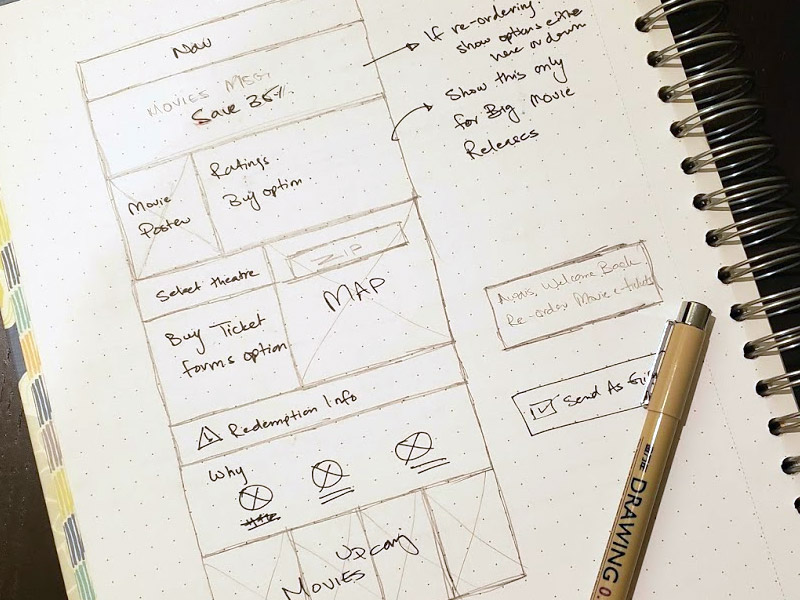 Nav
MOVIES MSG
Save 35%
Movie
Poster
Ratings
Buy option
Select theatre
ZIP
MAP
Buy Ticket
forms option
Redemption Info
Why
Upcoming
MOVIES
If re-ordering
show options either
here or down
Show this only
for Big Movie
Releases
Welcome Back
Re-order Movie tickets
Send As
DRAWING